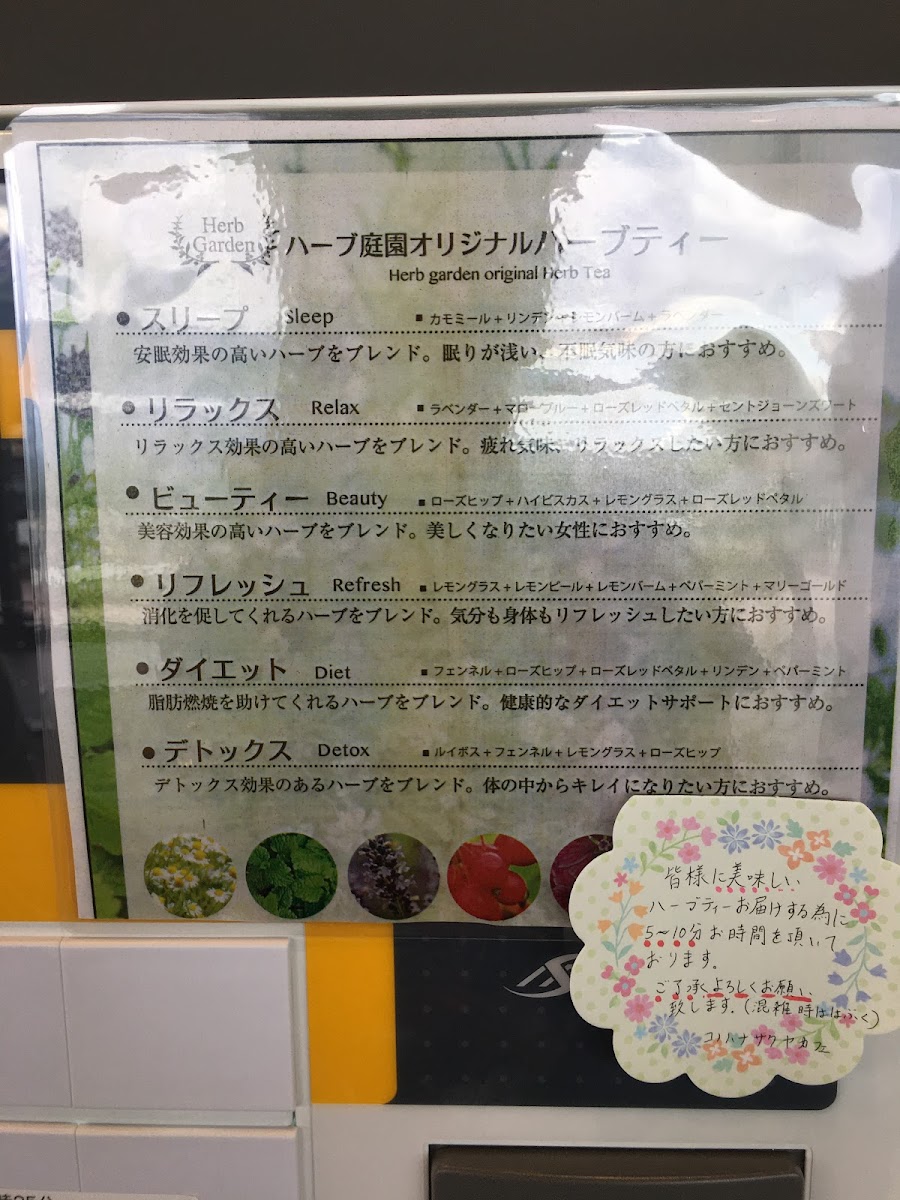 Herb
Garden
ハーブ庭園オリジナルハーブティー
Herb garden original Herb Tea
● スリープ Sleep ■ カモミール+リンデン+レモンバーム+ラベンダー
安眠効果の高いハーブをブレンド。眠りが浅い、不眠気味の方におすすめ。
● リラックス Relax ■ ラベンダー+マローブルー+ローズレッドペタル+セントジョーンズワート
リラックス効果の高いハーブをブレンド。疲れ気味、リラックスしたい方におすすめ。
● ビューティー Beauty ■ ローズヒップ+ハイビスカス+レモングラス+ローズレッドペタル
美容効果の高いハーブをブレンド。美しくなりたい女性におすすめ。
● リフレッシュ Refresh ■ レモングラス+レモンピール+レモンバーム+ペパーミント+マリーゴールド
消化を促してくれるハーブをブレンド。気分も身体もリフレッシュしたい方におすすめ。
● ダイエット Diet ■ フェンネル+ローズヒップ+ローズレッドペタル+リンデン+ペパーミント
脂肪燃焼を助けてくれるハーブをブレンド。健康的なダイエットサポートにおすすめ。
● デトックス Detox ■ ルイボス+フェンネル+レモングラス+ローズヒップ
デトックス効果のあるハーブをブレンド。体の中からキレイになりたい方におすすめ。
皆様に美味しい
ハーブティーお届けする為に
5〜10分お時間を頂いて
おります。
ご了承よろしくお願い
致します。(混雑時ははぶく)
コノハナサクヤカフェ